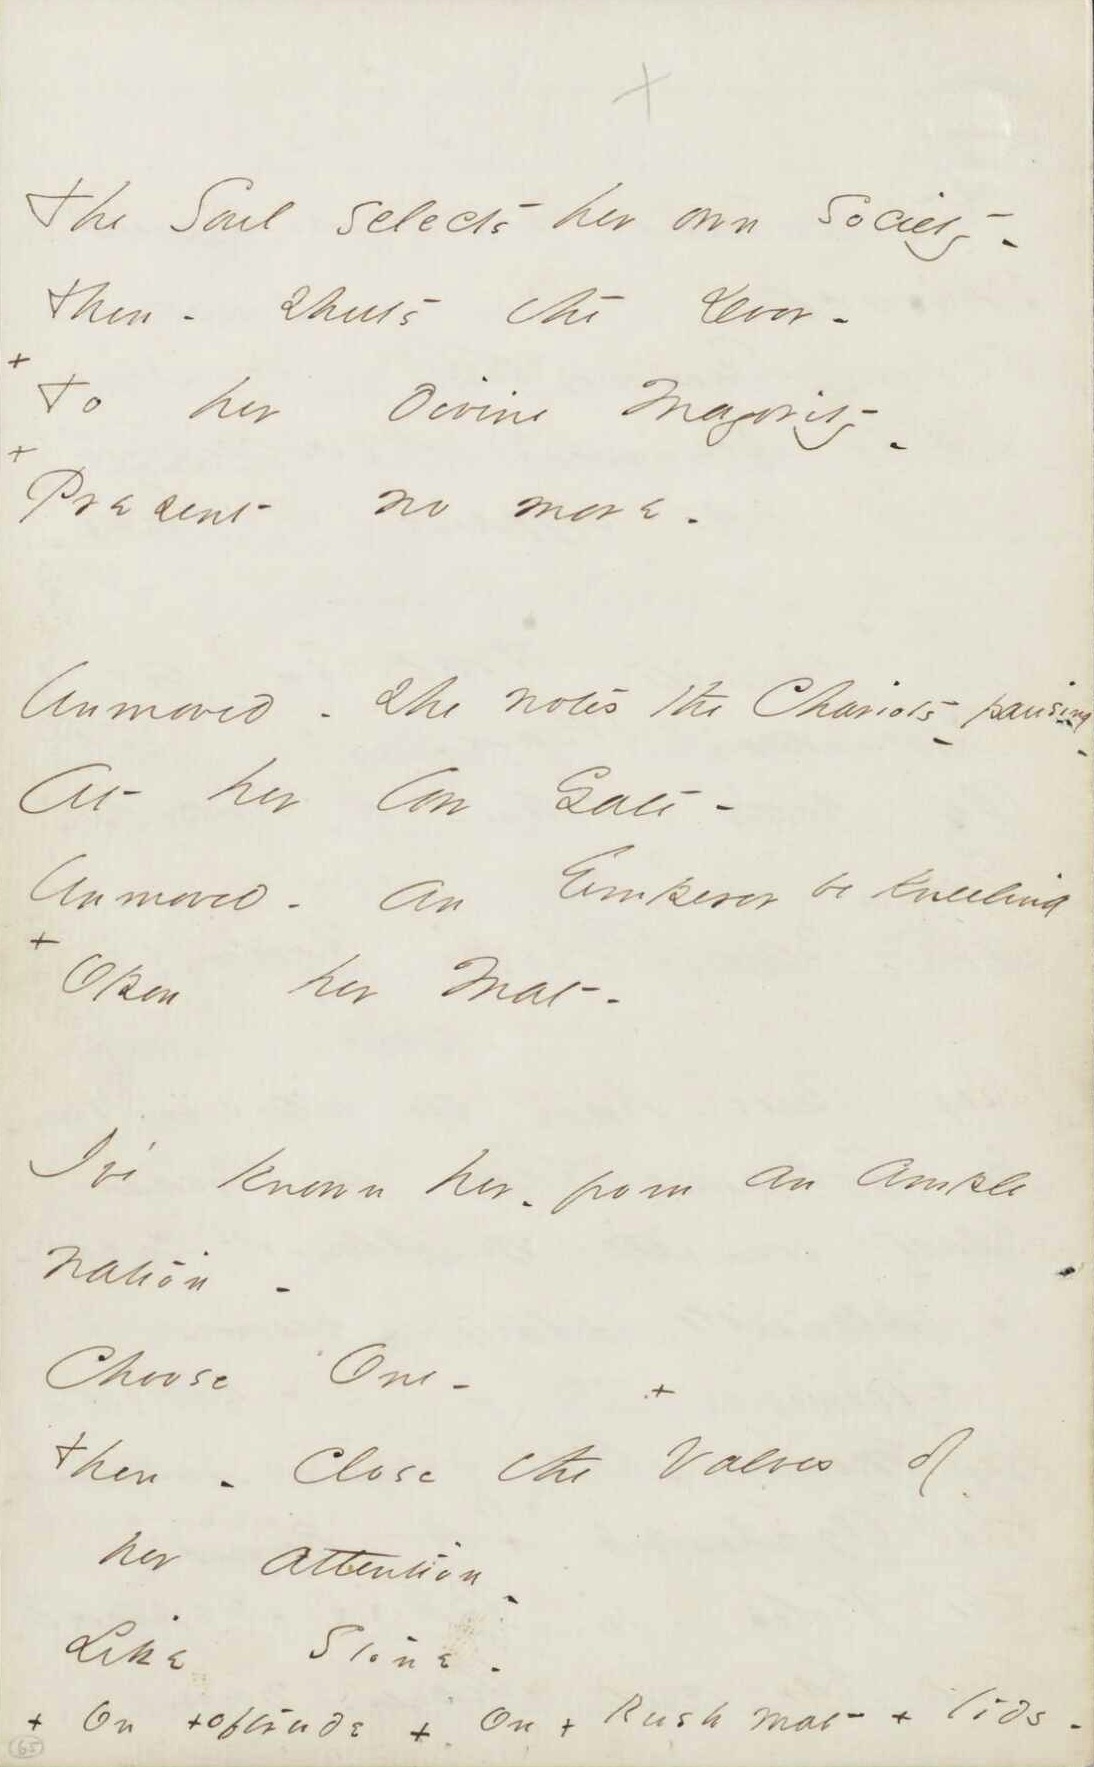 +
The Soul selects her own Society -
Then - shuts the Door -
+
To her divine Majority -
+
Present no more -
Unmoved - she notes the Chariots - pausing -
At her low Gate -
Unmoved - an Emperor be kneeling
+
Opon her Mat -
I've known her - from an ample
nation -
Choose One -
+
Then - close the Valves of
her attention -
Like Stone -
+ On + obtrude + On + Rush mat + lids -
65